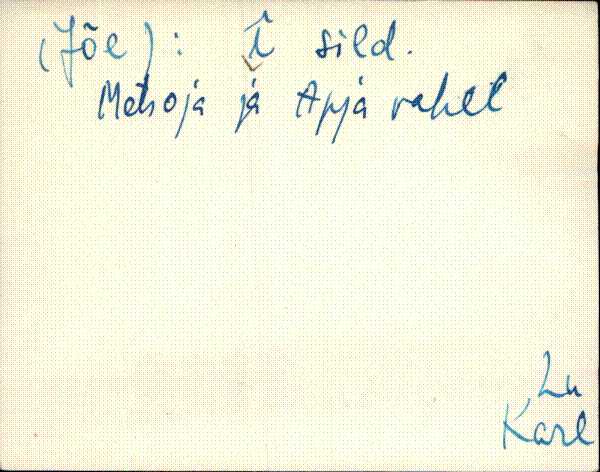 (Jõe): î sild.
Metsoja ja Apja vahel
Lu
Karl